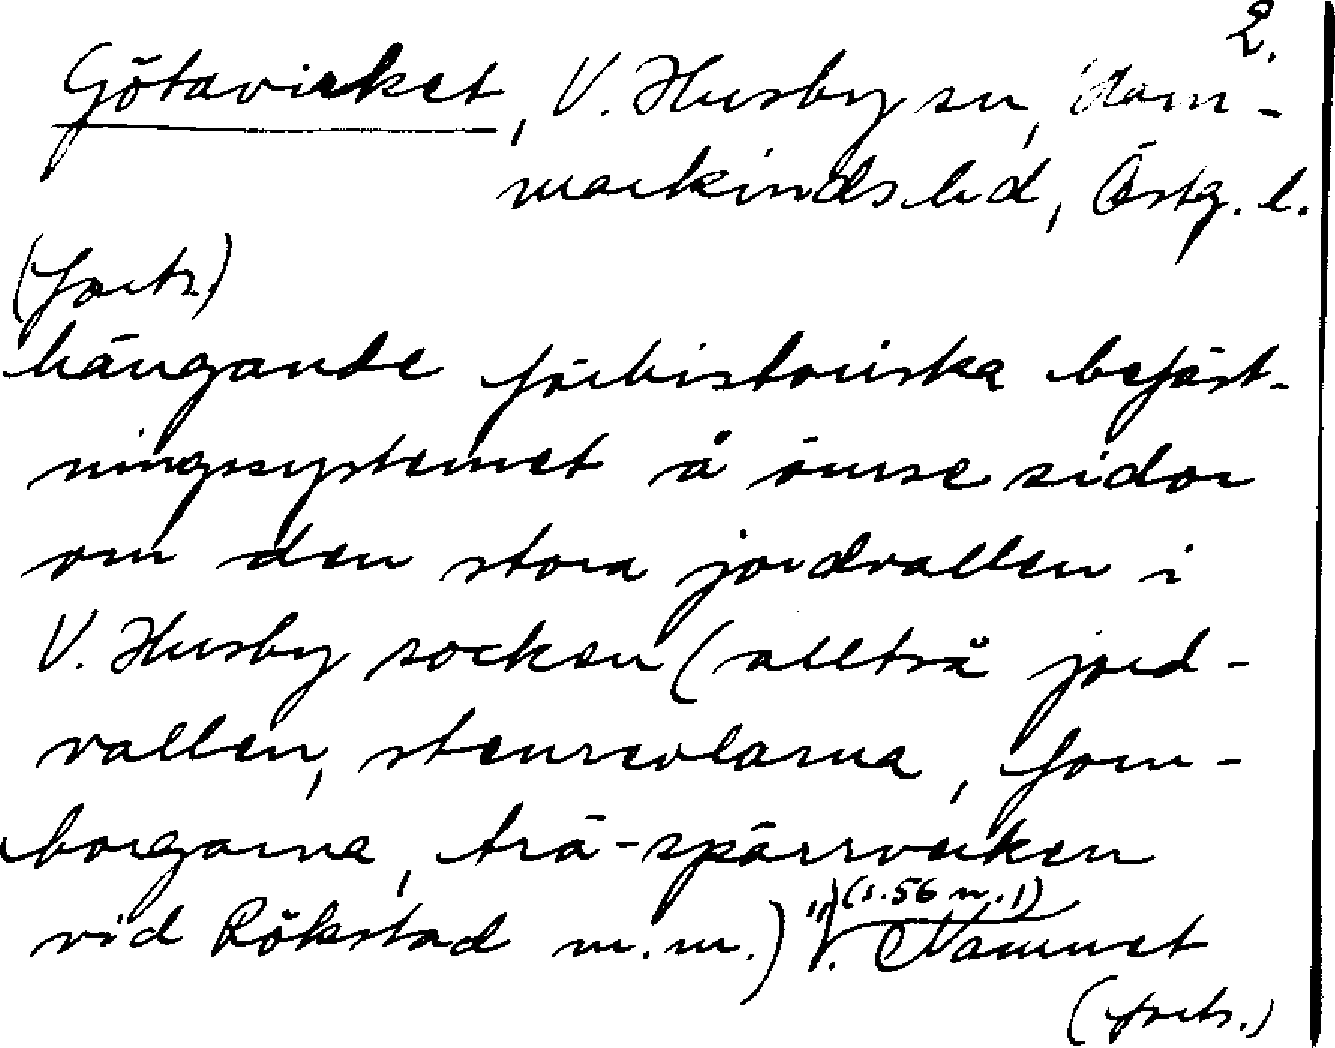 2.
Götavirket, V. Husby sn, Ham-
markinds hd, Östg. l.
(forts.)
hängande förhistoriska befäst-
ningssystemet å ömse sidor
om den stora jordvallen i
V. Husby socken (alltså jord-
vallen, stenrevlarna, forn-
borgarna, trä-spärrverken
vid Rökstad m.m.)" (s. 56 n. 1). Namnet
(forts.)